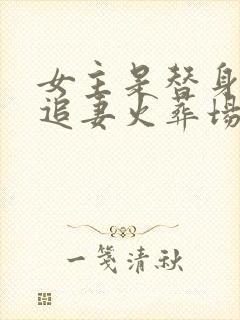 女主是替身
追妻火葬场
一笺清秋